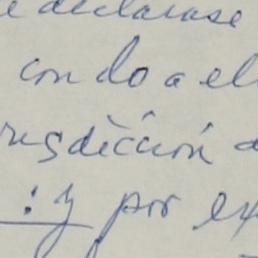 e declarase
con do a el
risdicción
: y por ex